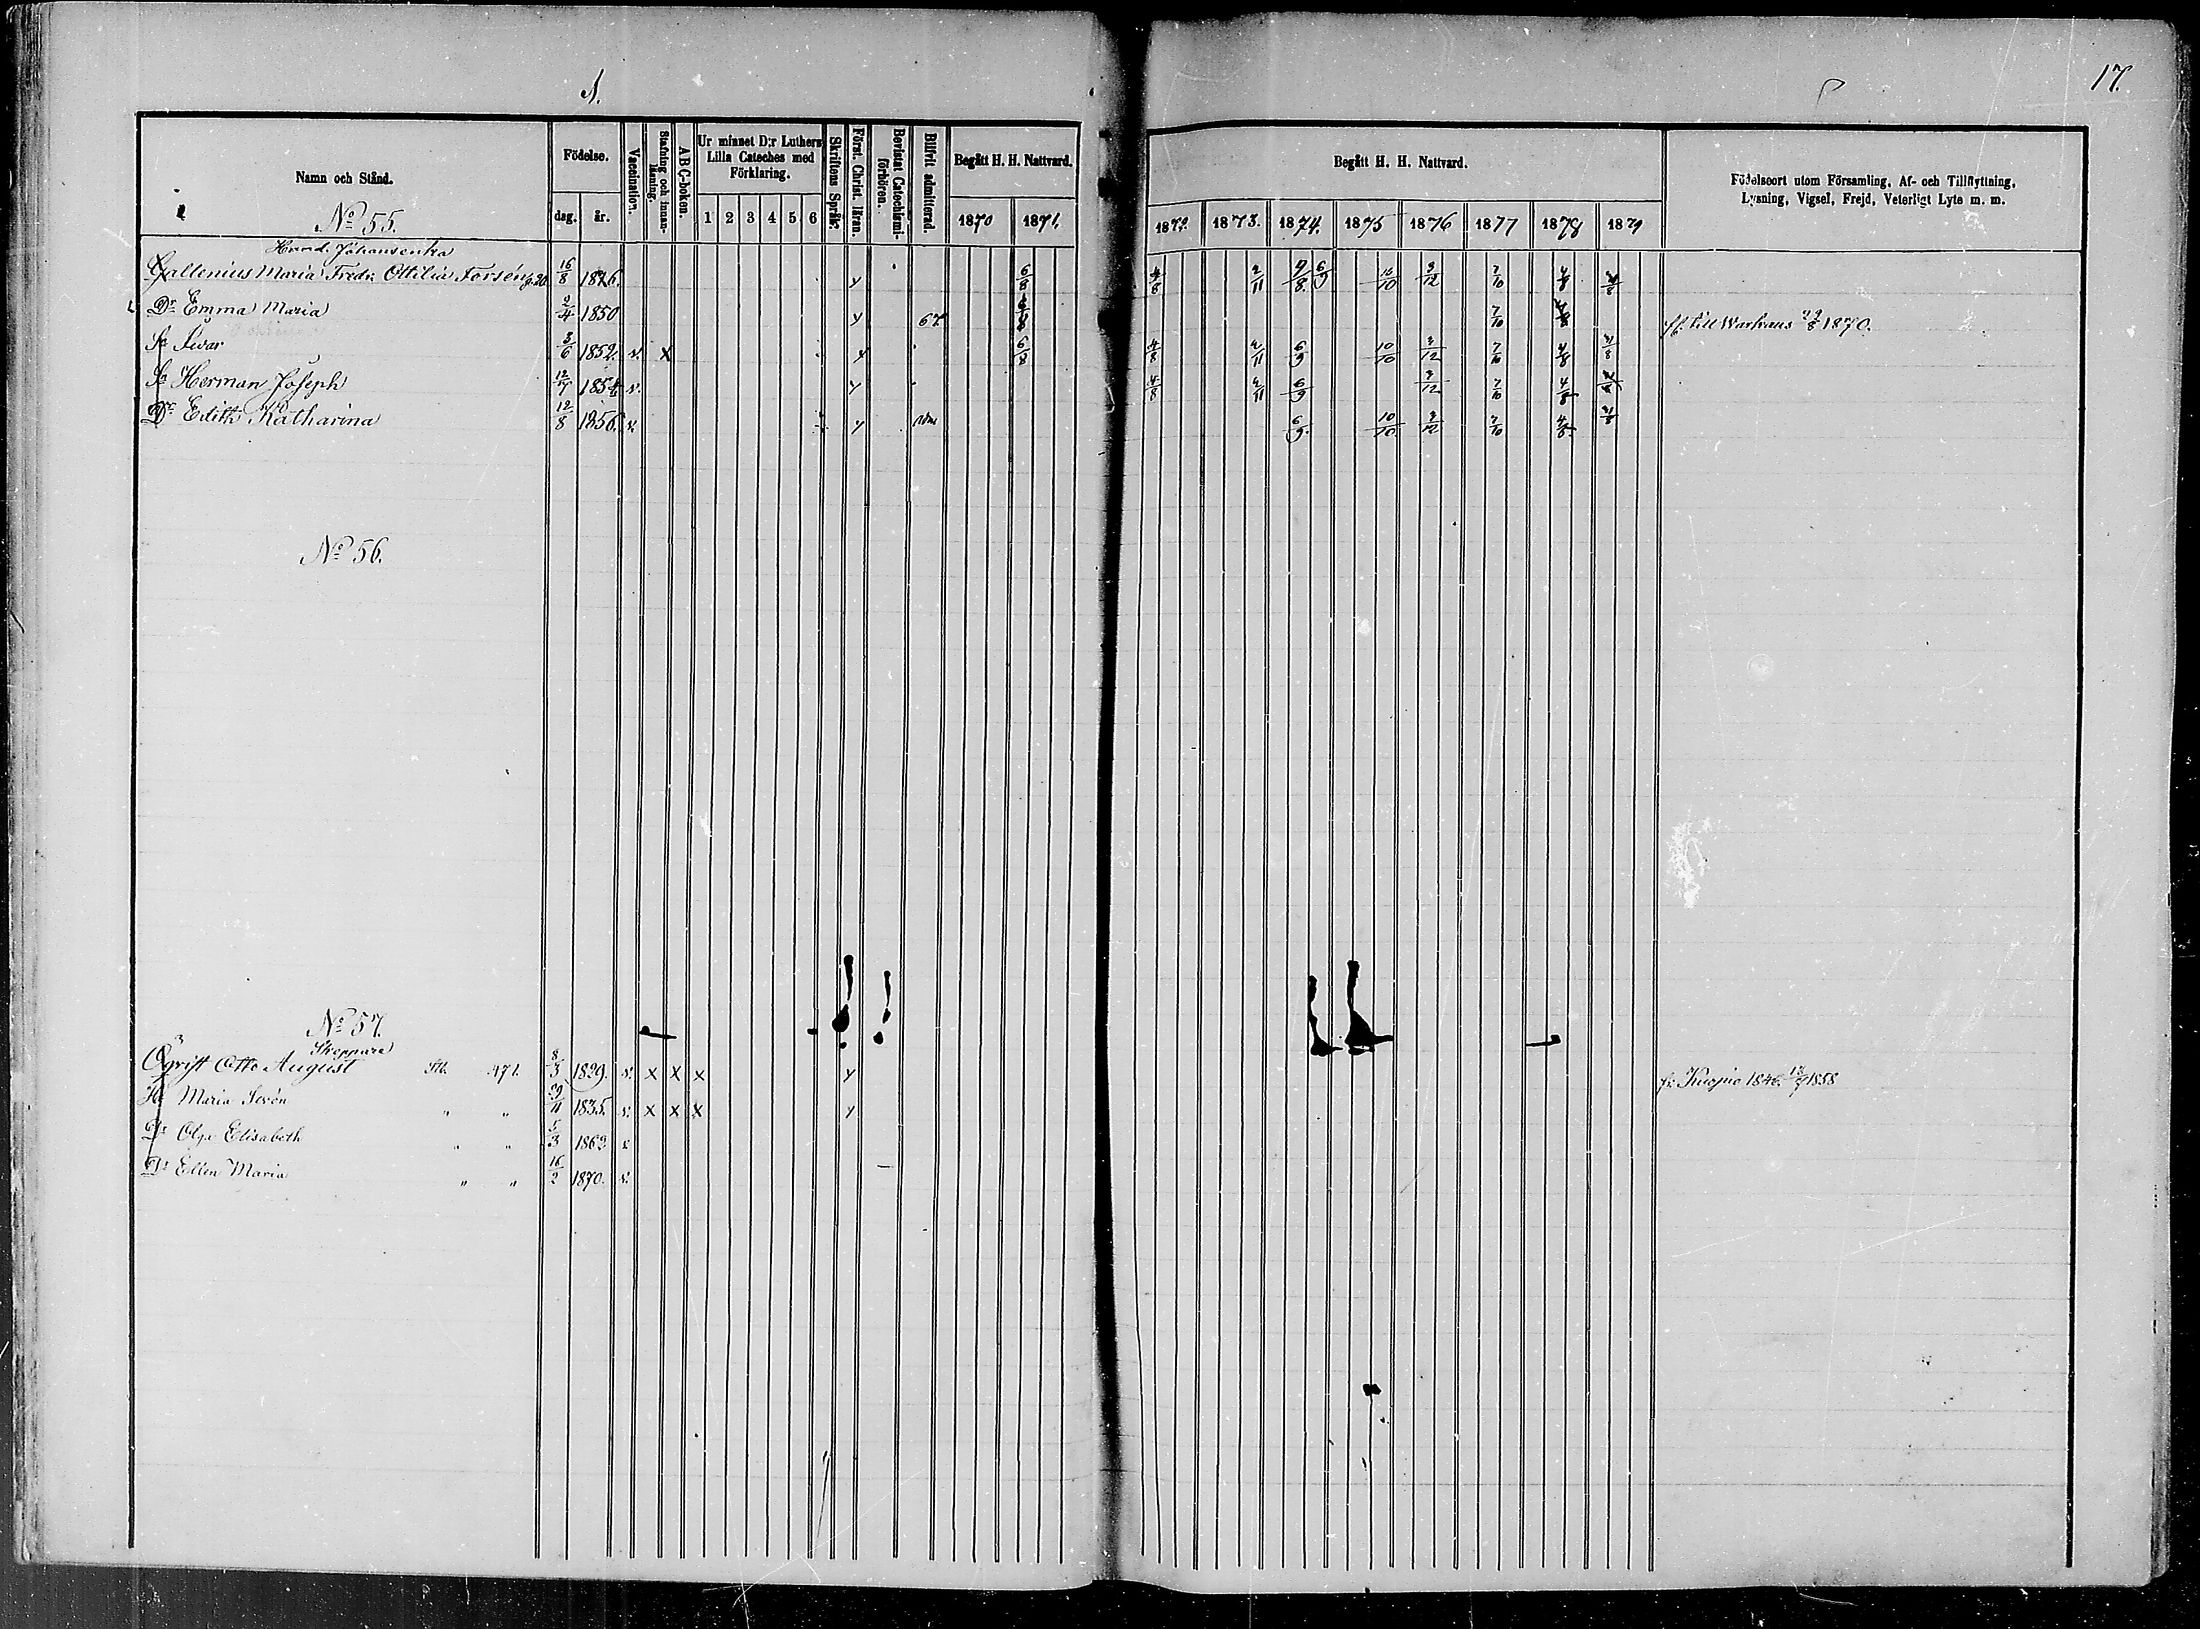 A.
17.
Namn och Stånd.
Födelse.
dag.
år.
Vaccination.
Stafning och innanläsning.
A B C-boken.
Ur minnet D:r Luthers Lilla Cateches med Förklaring.
1 2 3 4 5 6
Skriftens Språk.
Först. Christ. läran.
Bevistat Catechismi-förhören.
Blifvit admitterad.
Begått H. H. Nattvard.
1870 1871.
Begått H. H. Nattvard.
1872. 1873. 1874. 1875 1876 1877 1878 1879
Födelseort utom Församling, Af- och Tillflyttning,
Lysning, Vigsel, Frejd, Veterligt Lyte m. m.
No 55.
Gallenius Maria Fredr. Ottilia Forsén 16/8 1826. y 6/8 4/8 2/11 6/9 10/10 3/12 7/10 4/8
Dr Emma Maria 2/4 1850 y 67 7/10 4/8 till Warkaus 1870.
Sn Iwar 3/6 1852. v. x y 6/8 4/8 2/11 6/9 10/10 3/12 7/10 4/8
Sn Herman Joseph 12/7 1854 v. y 4/8 2/11 6/9 3/12 7/10 4/8
Dr Edith Katharina 12/8 1856. v. y 6/9. 10/10 3/12 7/10 4/8
No 56.
No 57.
Skeppare
Ögrift Otto August 471. 8/3 1829. v. x x x y fr. Kuopio 1846. 1858
Hu Maria Sevón " " 29/11 1835. v. x x x y
Dr Olga Elisabeth " " 5/3 1862 v.
Dr Ellen Maria " " 16/2 1870. v.